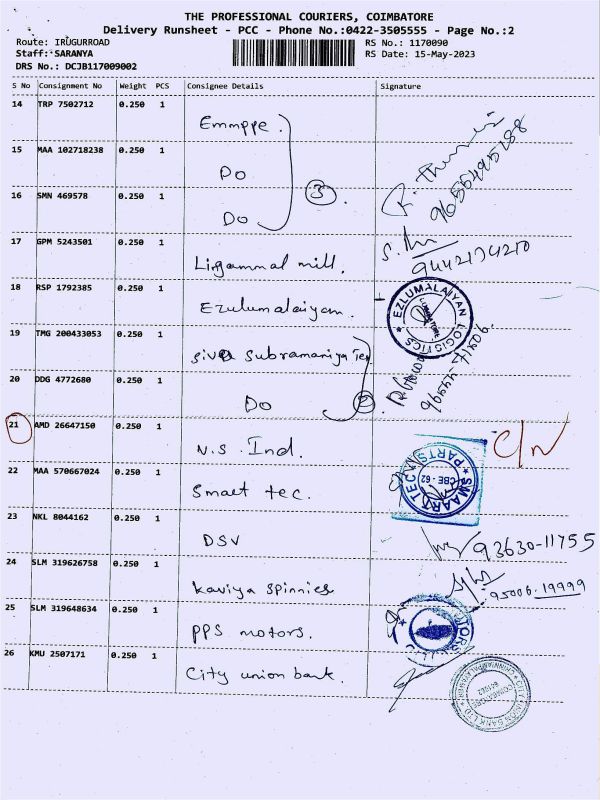 THE PROFESSIONAL COURIERS, COIMBATORE
Delivery Runsheet - PCC - Phone No.:0422-3505555 - Page No.:2
Route: IRUGURROAD
RS No.: 1170090
Staff: SARANYA
RS Date: 15-May-2023
DRS No.: DCJB117009002
S No Consignment No Weight PCS Consignee Details Signature
14 TRP 7502712 0.250 1 Emmppe.
15 MAA 102718238 0.250 1 Do
3
16 SMN 469578 0.250 1 Do
9655495288
17 GPM 5243501 0.250 1 Lingammal mill.
9442134210
18 RSP 1792385 0.250 1 Ezulumalaiyan.
EZLUMALAIYAN LOGISTICS
COIMBATORE
19 TMG 200433053 0.250 1 Siva Subramaniya Tex
20 DDG 4772680 0.250 1 Do
2
21 AMD 26647150 0.250 1 N.S. Ind.
C/N
22 MAA 570667024 0.250 1 Smart tec.
SMAART TEC PARTS
CBE - 62
23 NKL 8044162 0.250 1 DSV
93630-11755
24 SLM 319626758 0.250 1 Kaviya Spinnies
95006.19999
25 SLM 319648634 0.250 1 PPS motors.
26 KMU 2507171 0.250 1 City union bank.
CITY UNION BANK LTD
COIMBATORE